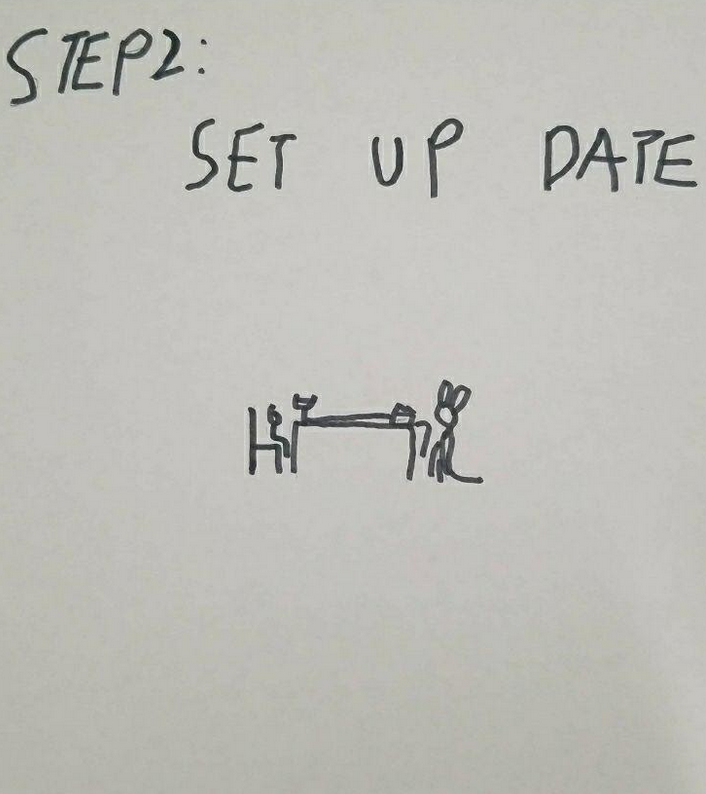 STEP2:
SET UP DATE